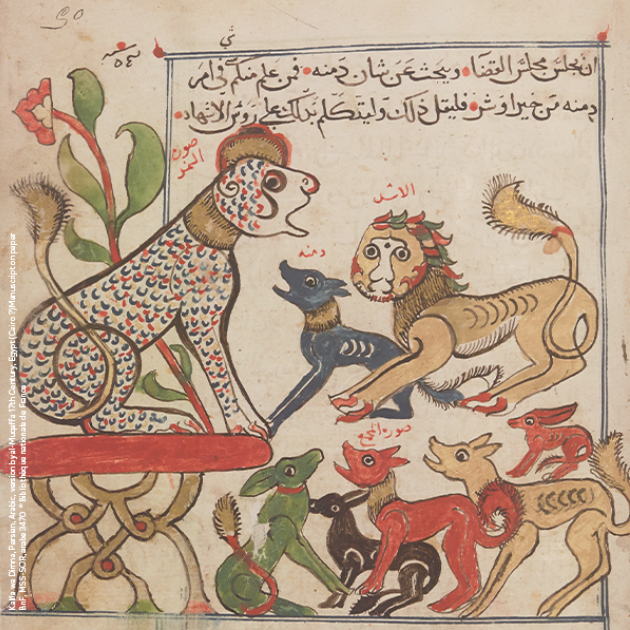 ان يجلس مجلس القضا • ويبحث عن شان دمنه • فمن علم منكم في امر
دمنه من خير او شر • فليقل ذلك وليتكلم بذلك على روس الاشهاد •
صورة
النمر
الاسد
دمنه
صورة المجمع
Kalila wa Dimna, Persian, Arabic, version by al-Muqaffa 17th Century, Egypt (Cairo ?) Manuscript on paper
BnF, MSS-SOR, arabe 3470 © Bibliothèque nationale de France